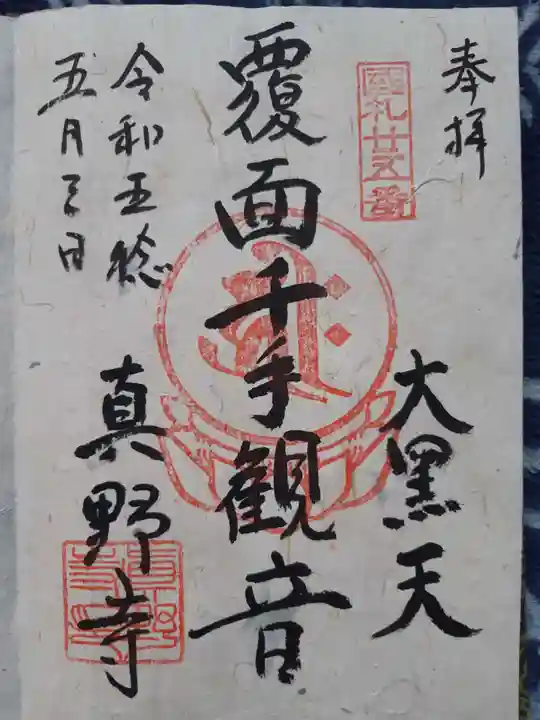 奉拝
國札廿五番
大黒天
覆面千手観音
真野寺
令和五稔
五月三日